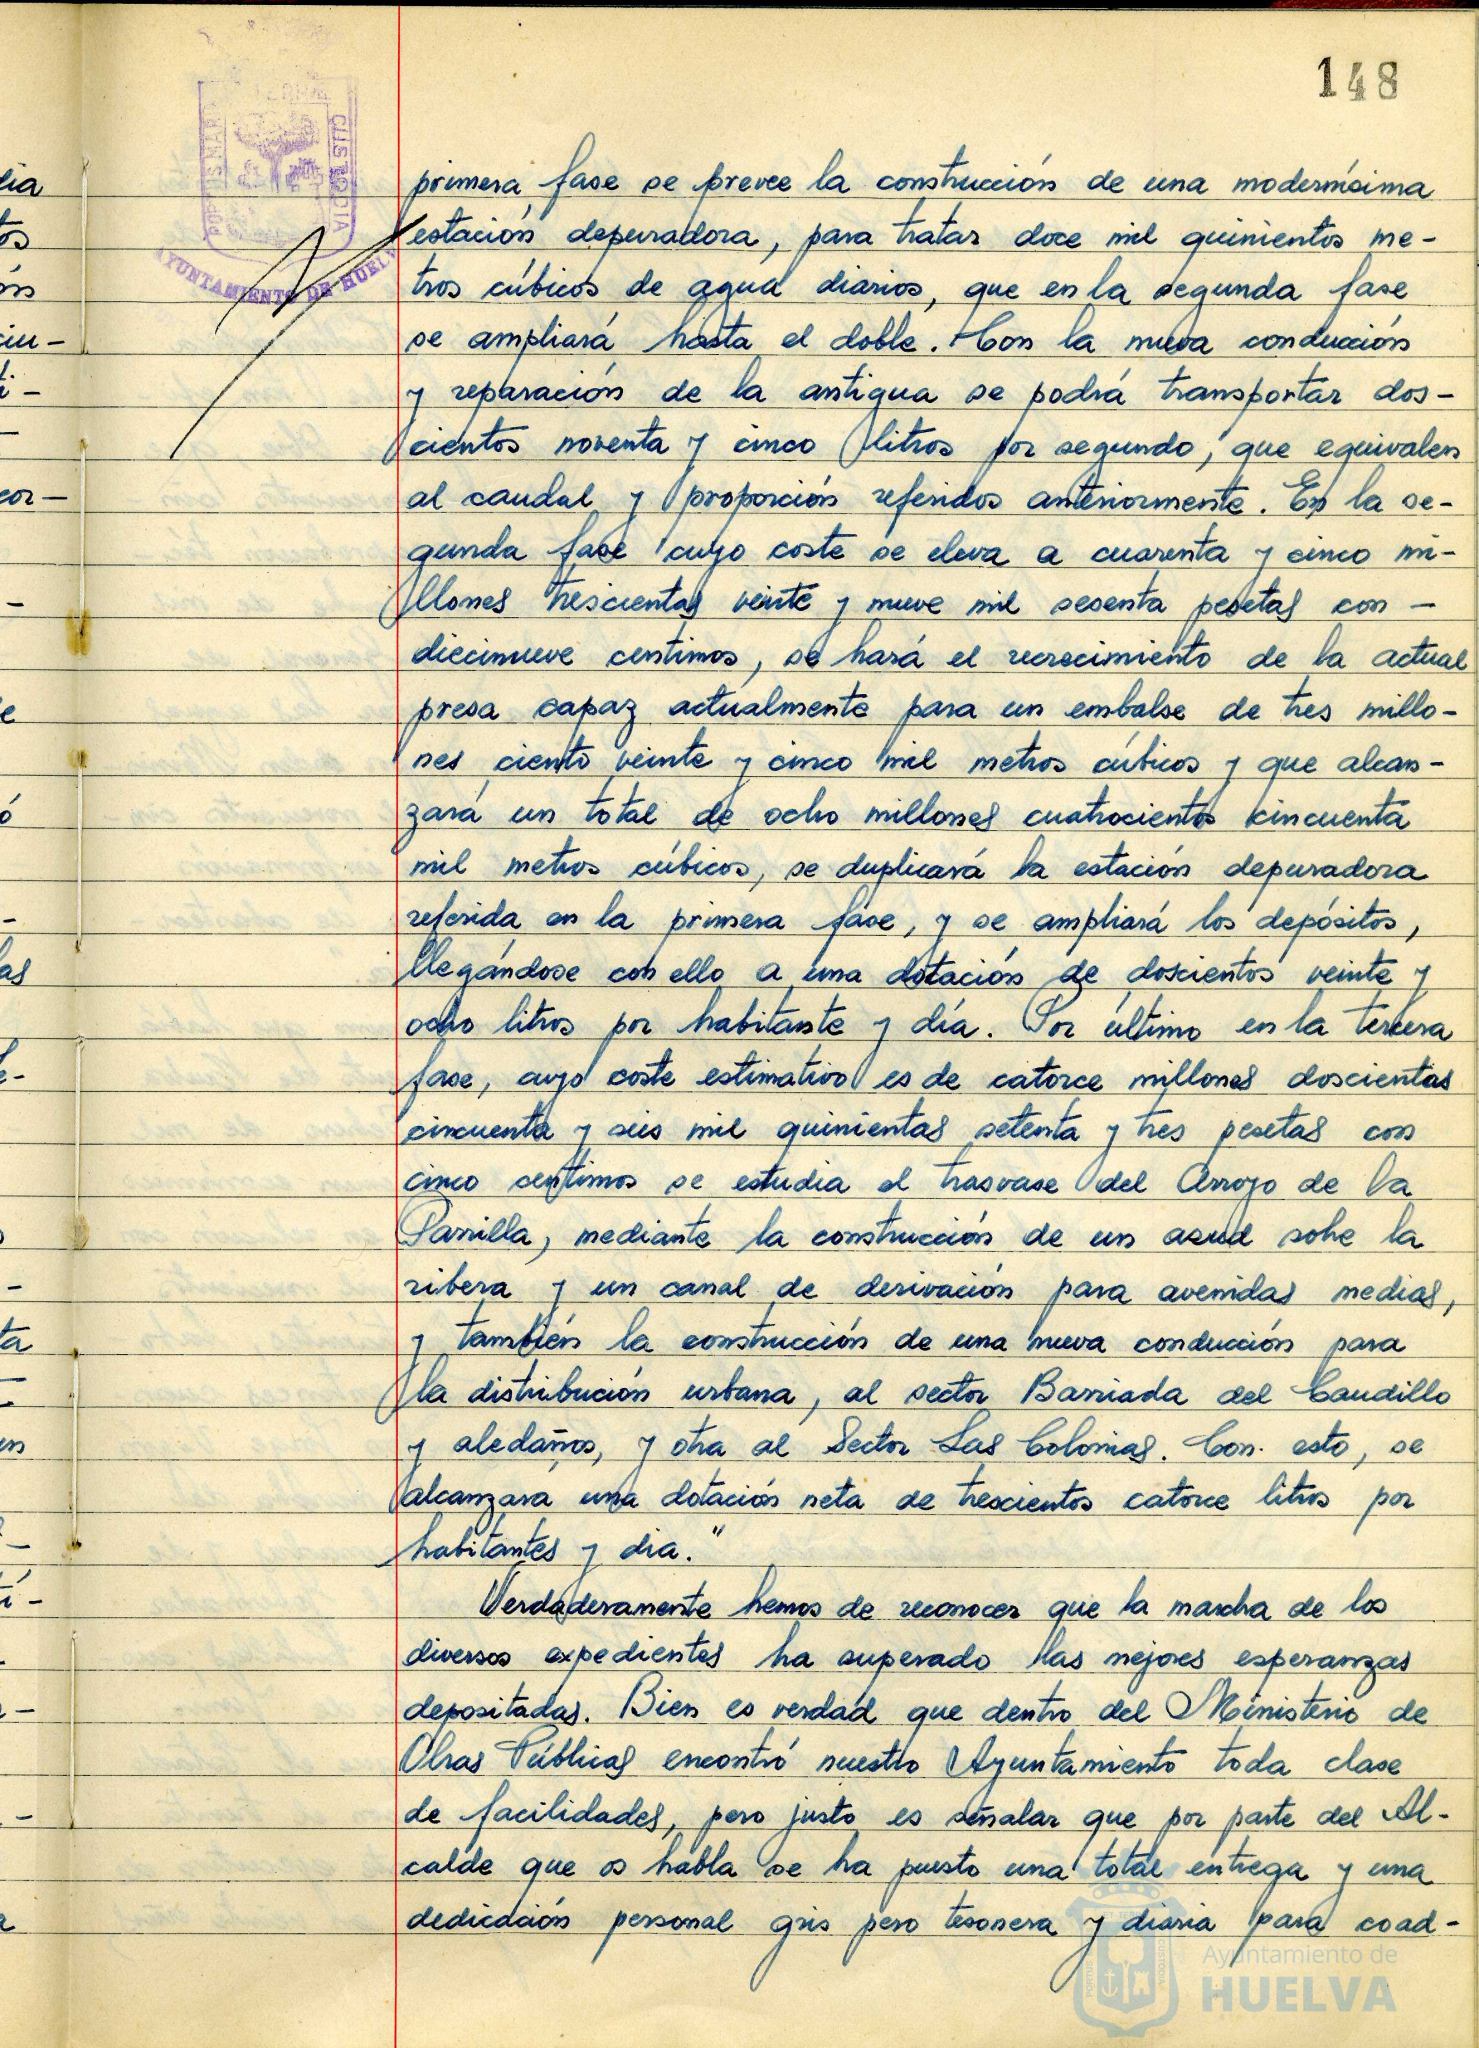 148
PORTUS MARIS ET TERRAE CUSTODIA
AYUNTAMIENTO DE HUELVA
primera fase se prevee la construcción de una modernísima
estación depuradora, para tratar doce mil quinientos me-
tros cúbicos de agua diarios, que en la segunda fase
se ampliará hasta el doble. Con la nueva conducción
y reparación de la antigua se podrá transportar dos-
cientos noventa y cinco litros por segundo, que equivalen
al caudal y proporción referidos anteriormente. En la se-
gunda fase cuyo coste se eleva a cuarenta y cinco mi-
llones trescientas veinte y nueve mil sesenta pesetas con -
diecinueve centimos, se hará el recrecimiento de la actual
presa capaz actualmente para un embalse de tres millo-
nes ciento veinte y cinco mil metros cúbicos y que alcan-
zará un total de ocho millones cuatrocientos cincuenta
mil metros cúbicos, se duplicará la estación depuradora
referida en la primera fase, y se ampliará los depósitos,
llegándose con ello a una dotación de doscientos veinte y
ocho litros por habitante y día. Por último en la tercera
fase, cuyo coste estimativo es de catorce millones doscientas
cincuenta y seis mil quinientas setenta y tres pesetas con
cinco centimos se estudia el trasvase del Arroyo de la
Parrilla, mediante la construcción de un azud sobre la
ribera y un canal de derivación para avenidas medias,
y también la construcción de una nueva conducción para
la distribución urbana, al sector Barriada del Caudillo
y aledaños, y otra al Sector Las Colonias. Con esto, se
alcanzará una dotación neta de trescientos catorce litros por
habitantes y dia."
Verdaderamente hemos de reconocer que la marcha de los
diversos expedientes ha superado las mejores esperanzas
depositadas. Bien es verdad que dentro del Ministerio de
Obras Públicas encontró nuestro Ayuntamiento toda clase
de facilidades, pero justo es señalar que por parte del Al-
calde que os habla se ha puesto una total entrega y una
dedicación personal gris pero tesonera y diaria para coad-
Ayuntamiento de
HUELVA